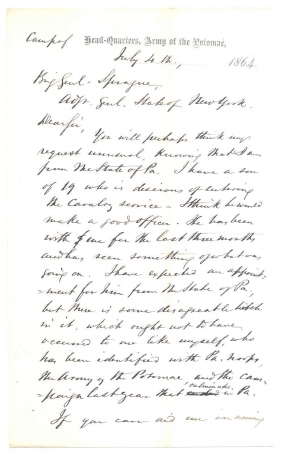 Camp of Head-Quarters, Army of the Potomac,
July 4 th, 1864
Brig Genl. Sprague,
Adjt. Genl. State of New York.
Dear Sir,
You will perhaps think my
request unusual, knowing that I am
from the State of Pa. I have a son
of 19 who is desirous of entering
the Cavalry service - I think he would
make a good officer. He has been
with me for the last three months
and has seen something of what was
going on. I have expected an appoint
-ment for him from the State of Pa
but there is some disagreeable hitch
in it, which ought not to have
occurred to one like myself, who
has been identified with Pa. troops,
the Army of the Potomac and the cam-
-paign last year that culminated in Pa.
If you can aid me in